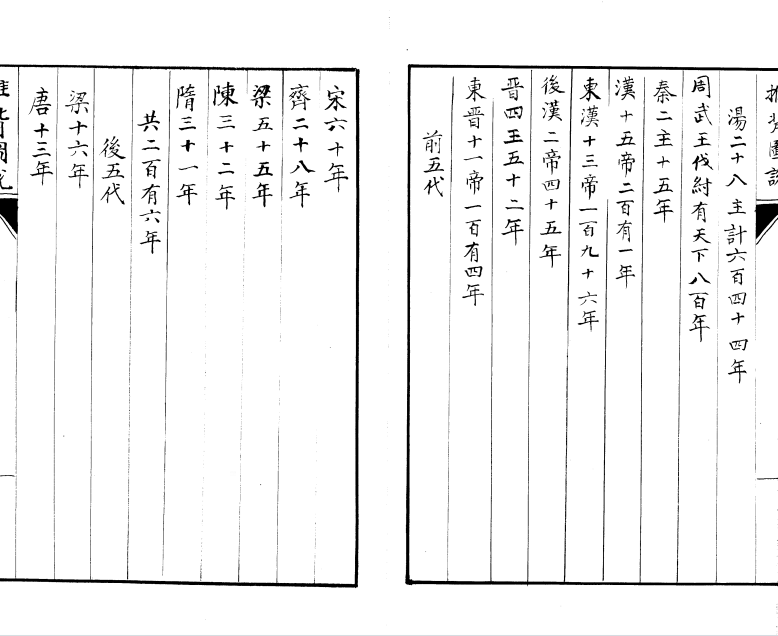 推背圖説
湯二十八主計六百四十四年
周武王伐紂有天下八百年
秦二主十五年
漢十五帝二百有一年
東漢十三帝一百九十六年
後漢二帝四十五年
晋四王五十二年
東晋十一帝一百有四年
前五代
宋六十年
齊二十八年
梁五十五年
陳三十二年
隋三十一年
共二百有六年
後五代
梁十六年
唐十三年
推背圖説